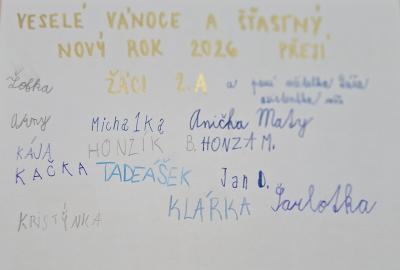 VESELÉ VÁNOCE A ŠŤASTNÝ
NOVÝ ROK 2026 PŘEJÍ
ŽÁCI 2.A a paní učitelka
asistentka
Anny Michalka Anička Maty
KÁJA HONZÍK B. HONZA M.
KAČKA TADEÁŠEK Jan D.
KLÁRKA Šarlotka
KRISTÝNKA